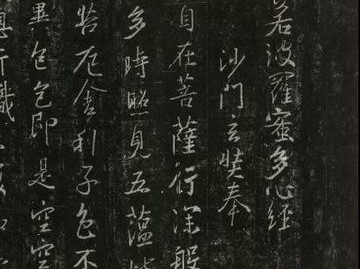 若波羅蜜多心經
沙門玄奘奉
自在菩薩行深般
多時照見五蘊皆
苦厄舍利子色不
異色色即是空空
想行識